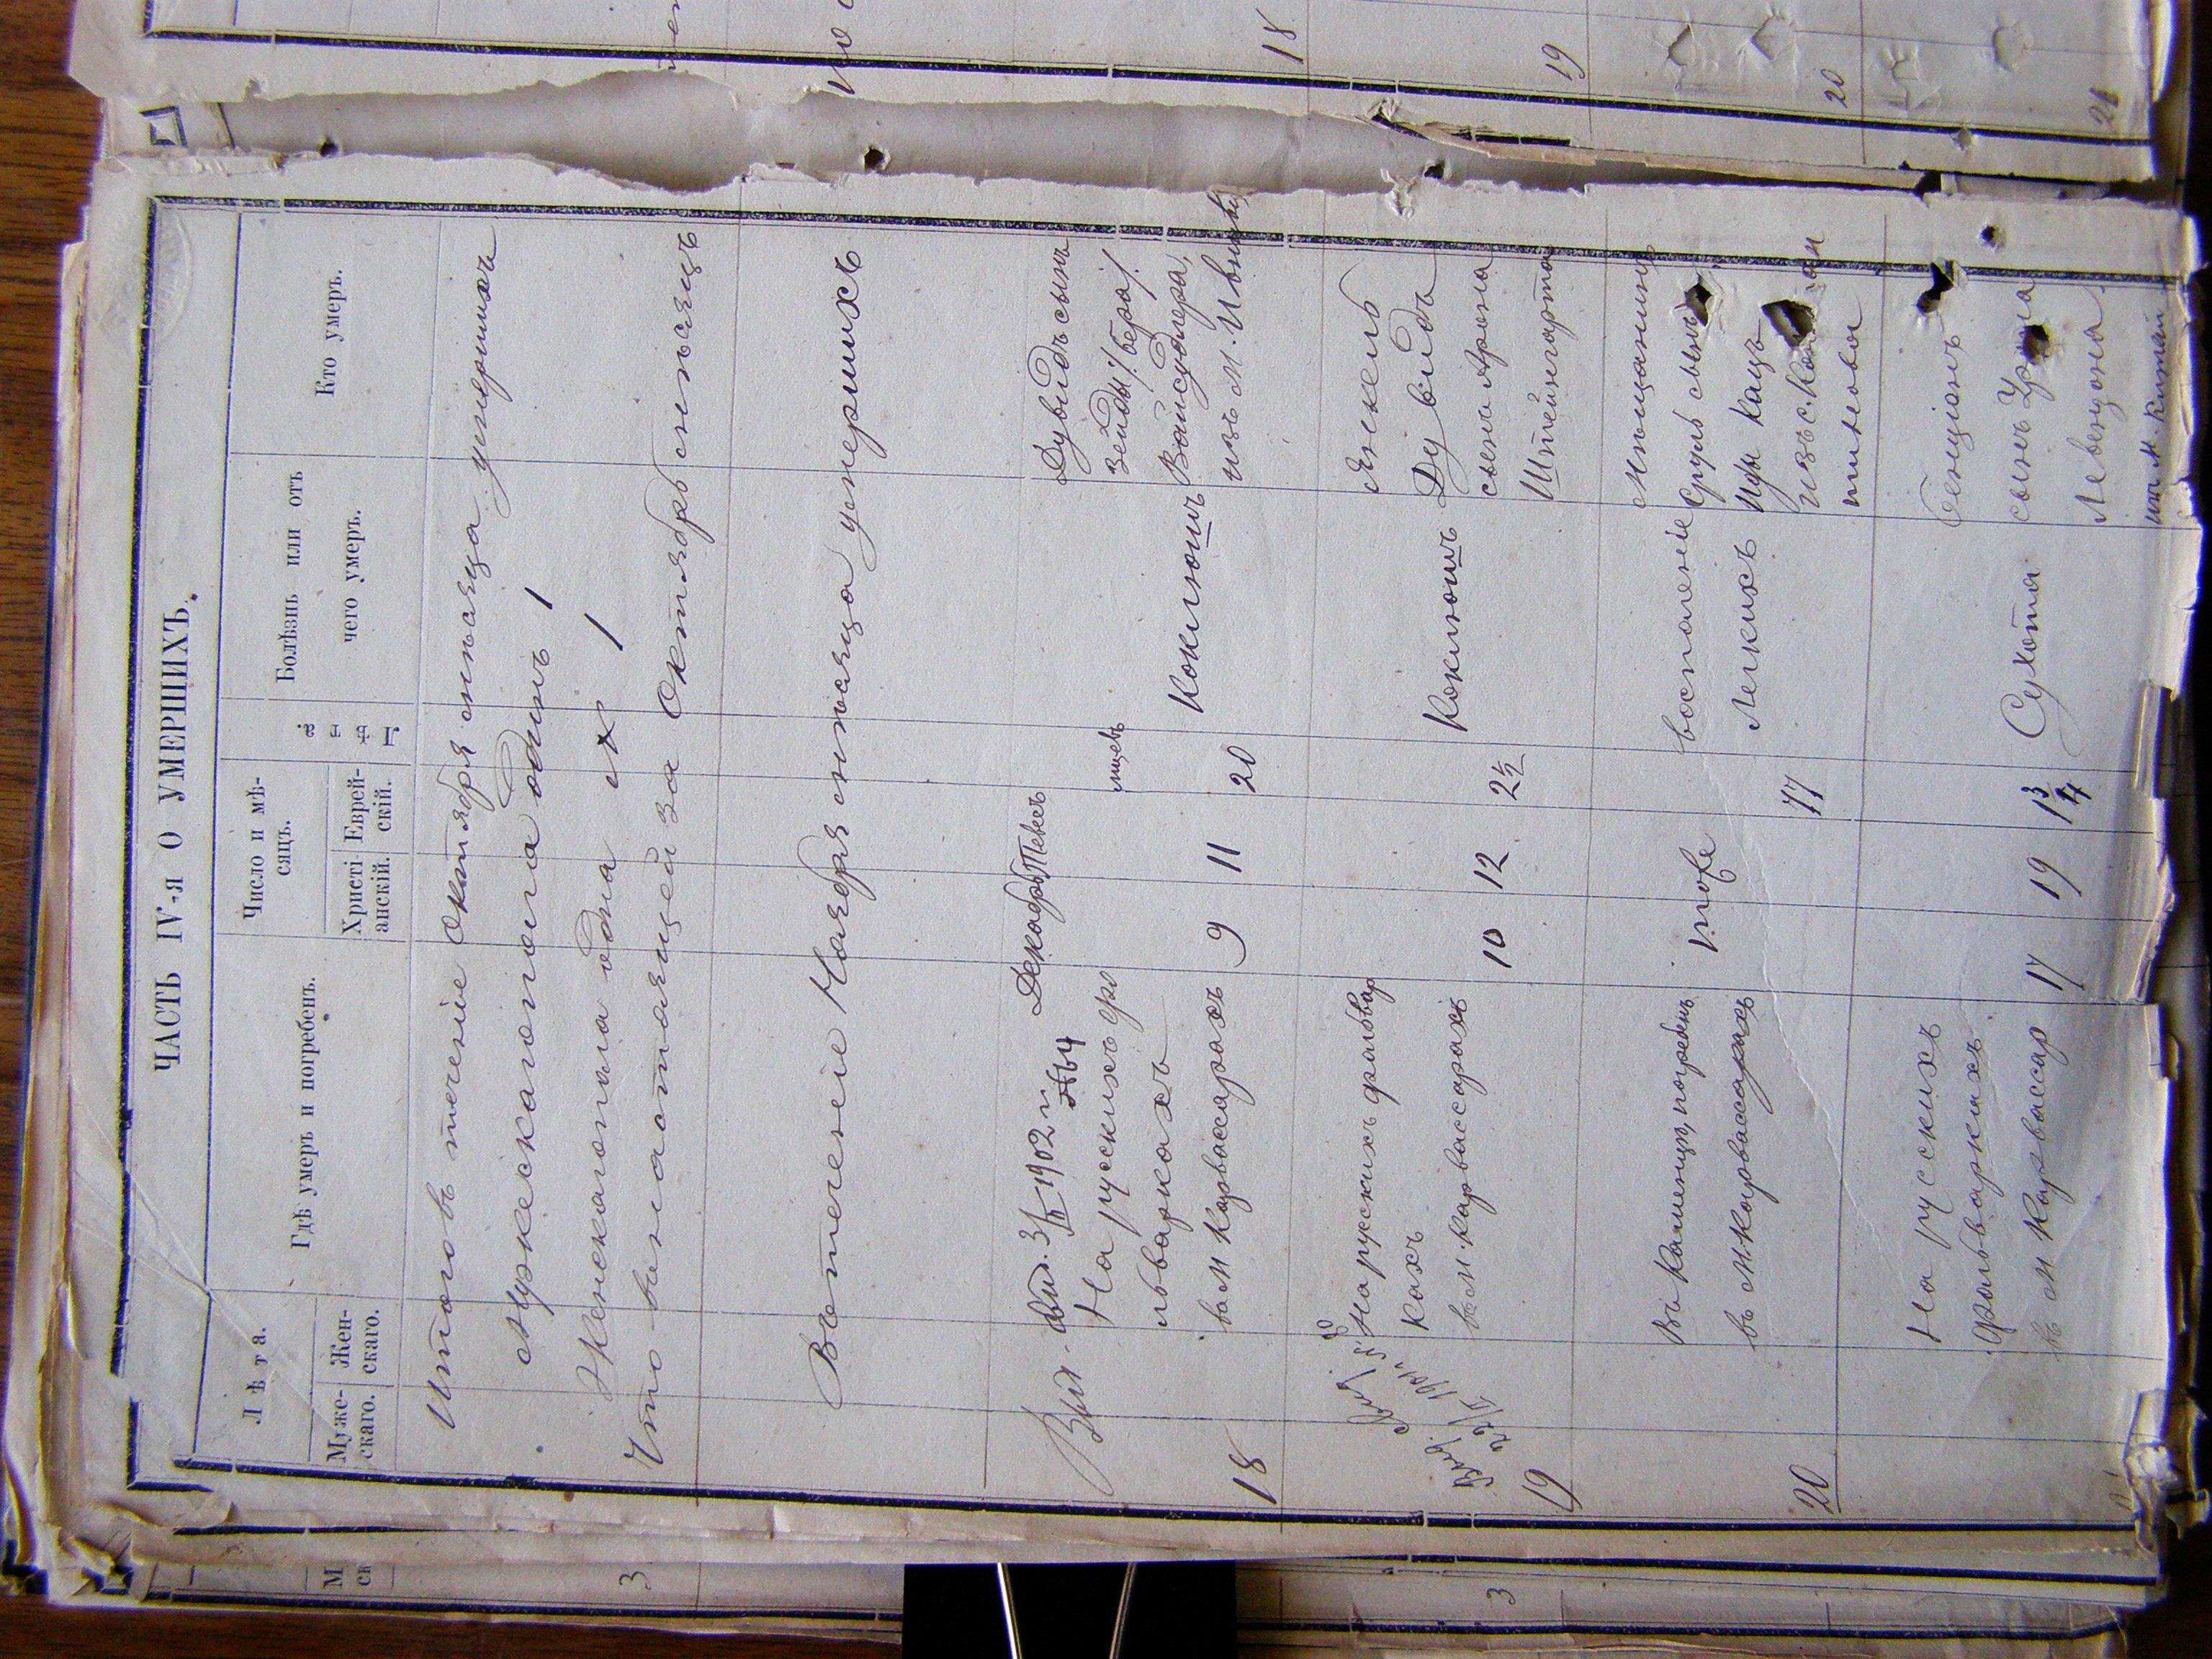 ЧАСТЬ IV-я О УМЕРШИХЪ.
Лѣта.
Муже-
скаго.
Жен-
скаго.
Гдѣ умеръ и погребенъ.
Число и мѣ-
сяцъ.
Христі
анскій.
Еврей-
скій.
Лѣта.
Болѣзнь или отъ
чего умеръ.
Кто умеръ.
Итогов теченіе Октября мѣсяца умершихъ
Мужескаго пола одинъ 1
Женскаго пола одна 1
Что въ настоящей за Октябрь мѣсяцъ
Въ теченіе Ноября мѣсяца умершихъ
Выд. 1902 г.
Декабрь
Тевес
18
На русскихъ фо
льваркахъ
в м Карвассарахъ
9
11
20
Коклюшъ
Дувидъ сынъ
Зейды /. бера /.
Вайсдалера,
изъ м.
19
На русскихъ фольвар
кахъ
в м. Карвассарахъ
10
12
2½
Коклюшъ
Янкель
Дувидъ
сынъ Арона
Штейнгарта
20
Въ Каменцѣ, погребенъ
въ м. Карвассарахъ
тоже
77
воспаленіе
легкихъ
Мѣщанинъ
Сруль сынъ
Иды Кацъ
изъ с.
На русскихъ
фольваркахъ
въ м Карвассар
17
19
1¾
Сухота
Бенціонъ
сынъ
Левензона
М
ск
3
3
18
19
20
21